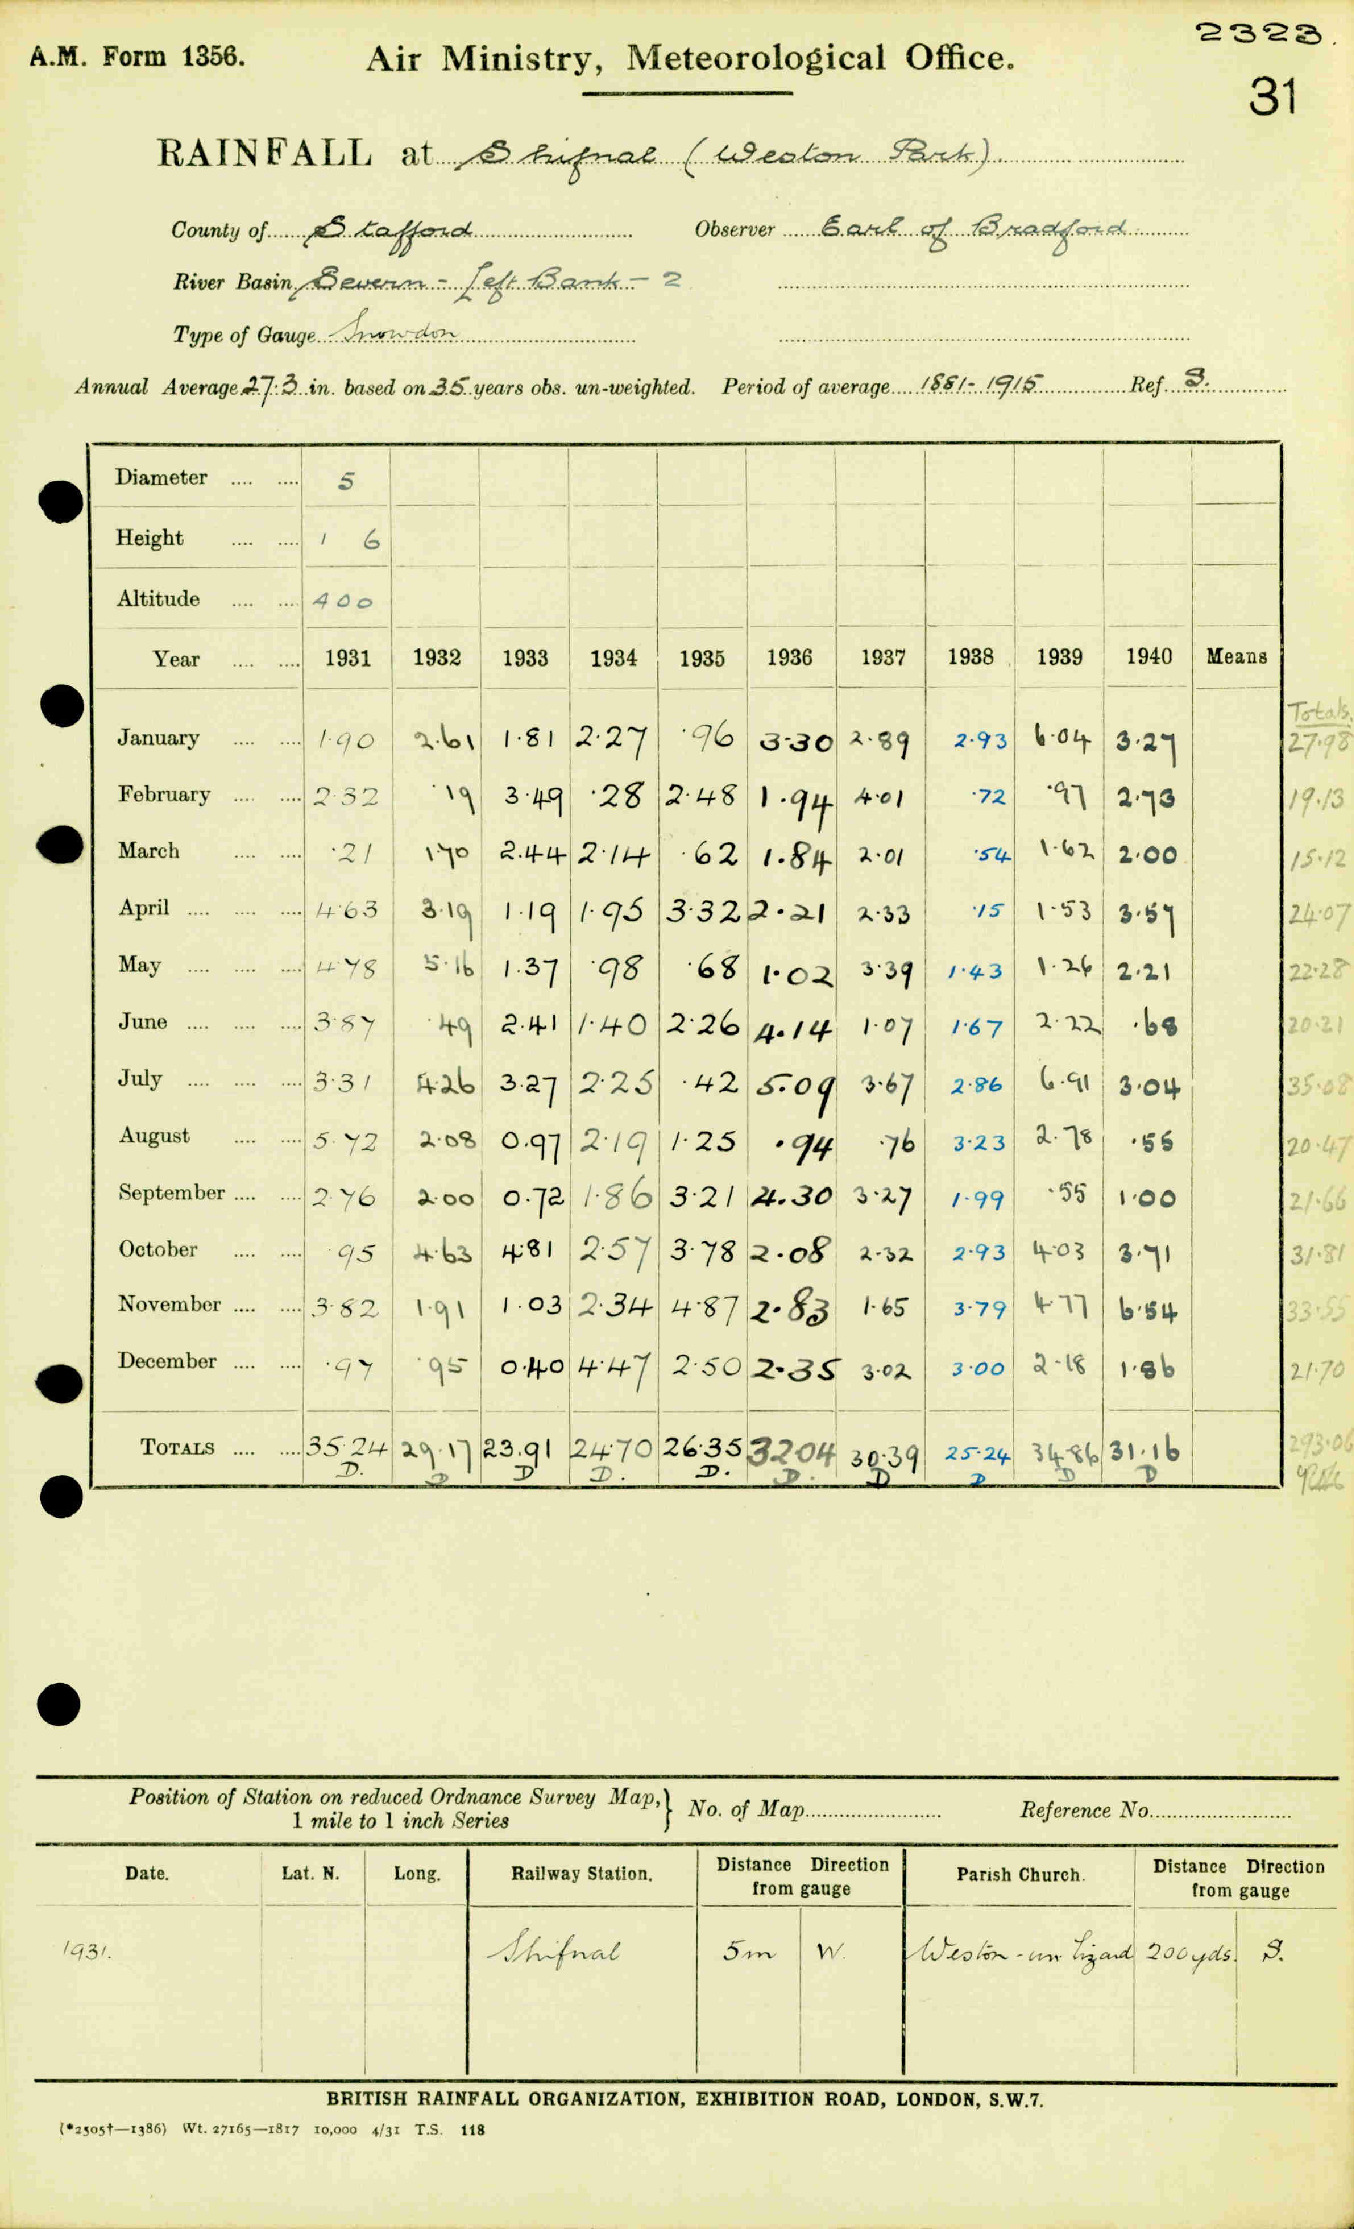 2323.
A.M. Form 1356. Air Ministry, Meteorological Office.
31
RAINFALL at Shifnal (Weston Park)
County of Stafford Observer Earl of Bradford
River Basin Severn - Left Bank - 2
Type of Gauge Snowdon
Annual Average 27.3 in. based on 35 years obs. un-weighted. Period of average 1881-1915 Ref. S.
Diameter .... .... 5
Height .... .... 1 6
Altitude .... .... 400
Year .... .... 1931 1932 1933 1934 1935 1936 1937 1938 1939 1940 Means
Totals.
January .... .... 1.90 2.61 1.81 2.27 .96 3.30 2.89 2.93 6.04 3.27 27.98
February .... .... 2.32 .19 3.49 .28 2.48 1.94 4.01 .72 .97 2.73 19.13
March .... .... .21 1.70 2.44 2.14 .62 1.84 2.01 .54 1.62 2.00 15.12
April .... .... .... 4.63 3.19 1.19 1.95 3.32 2.21 2.33 .15 1.53 3.57 24.07
May .... .... .... 4.78 5.16 1.37 .98 .68 1.02 3.39 1.43 1.26 2.21 22.28
June .... .... .... 3.87 .49 2.41 1.40 2.26 4.14 1.07 1.67 2.22 .68 20.21
July .... .... .... 3.31 4.26 3.27 2.25 .42 5.09 3.67 2.86 6.91 3.04 35.08
August .... .... 5.72 2.08 0.97 2.19 1.25 .94 .76 3.23 2.78 .55 20.47
September .... .... 2.76 2.00 0.72 1.86 3.21 4.30 3.27 1.99 .55 1.00 21.66
October .... .... .95 4.63 4.81 2.57 3.78 2.08 2.32 2.93 4.03 3.71 31.81
November .... .... 3.82 1.91 1.03 2.34 4.87 2.83 1.65 3.79 4.77 6.54 33.55
December .... .... .97 .95 0.40 4.47 2.50 2.35 3.02 3.00 2.18 1.86 21.70
TOTALS .... .... 35.24 29.17 23.91 24.70 26.35 32.04 30.39 25.24 34.86 31.16 293.06
D. D D D. D. D. D D D D
Position of Station on reduced Ordnance Survey Map,} No. of Map Reference No.
1 mile to 1 inch Series
Date. Lat. N. Long. Railway Station. Distance Direction from gauge Parish Church. Distance Direction from gauge
1931. Shifnal 5m W. Weston-un Lizard 200 yds. S.
BRITISH RAINFALL ORGANIZATION, EXHIBITION ROAD, LONDON, S.W.7.
(*2505†—1386) Wt. 27165—1817 10,000 4/31 T.S. 118